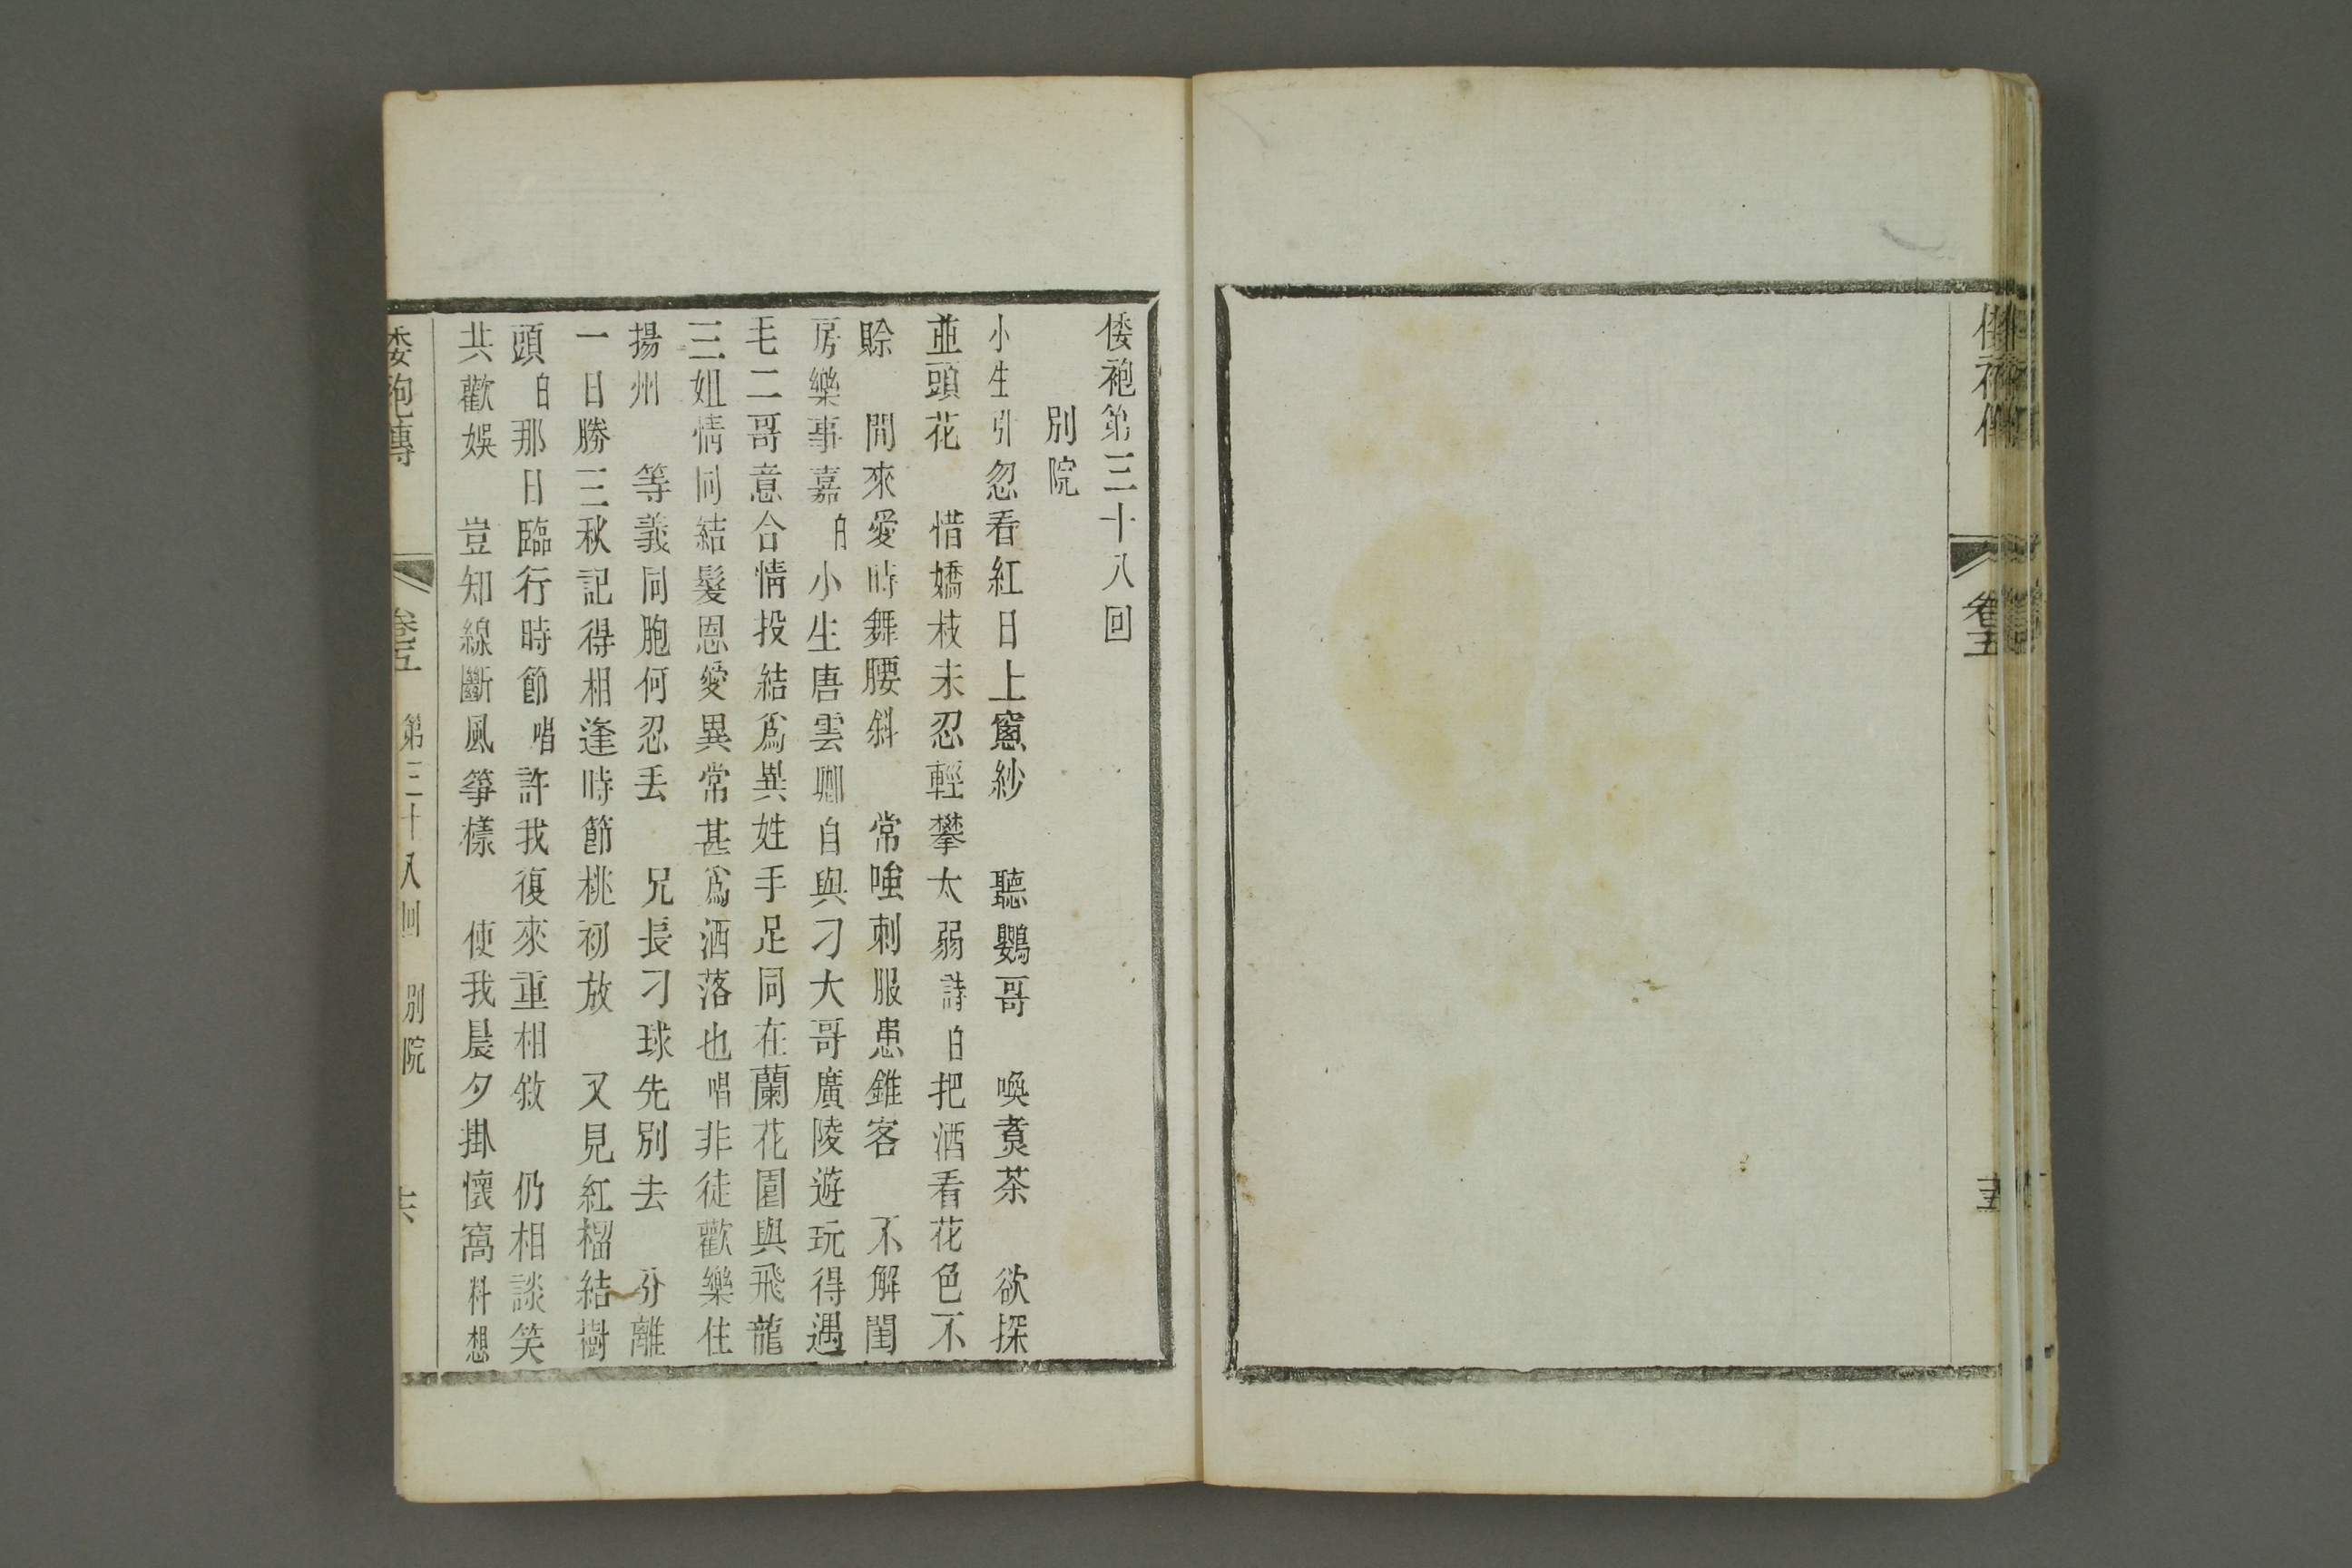 倭袍傳
卷五
倭袍第三十八回
別院
小生引忽看紅日上窻紗　聽鸚哥　喚煑茶　欲探
並頭花　惜嬌枝未忍輕攀太弱詩白把酒看花色不
賒　閒來愛時舞腰斜　常嗤刺服患錐客　不解閨
房樂事嘉白小生唐雲卿自與刁大哥廣陵遊玩得遇
毛二哥意合情投結爲異姓手足同在蘭花園與飛龍
三姐情同結髮恩愛異常甚爲洒落也唱非徒歡樂住
揚州　等義同胞何忍丢　兄長刁球先別去　分離
一日勝三秋記得相逢時節桃初放　又見紅榴結樹
頭白那日臨行時節唱許我復來重相敘　仍相談笑
共歡娛　豈知線斷風箏樣　使我晨夕掛懷窩料想
倭袍傳
卷五
第三十八回
別院